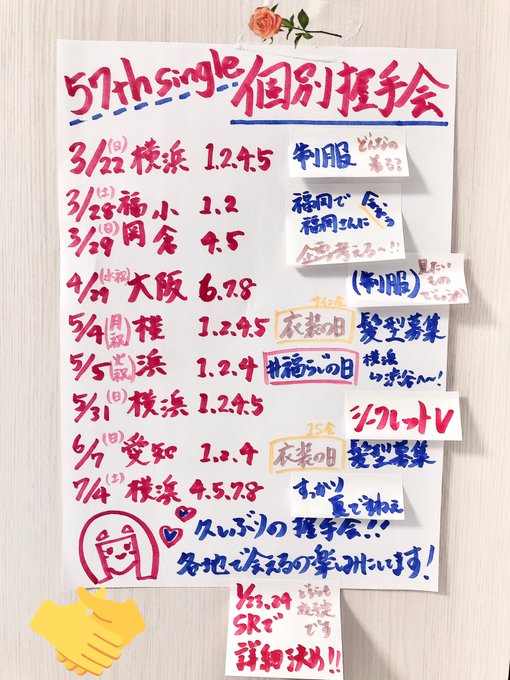 57th single 個別握手会
3/22(日) 横浜 1.2.4.5 制服 どんなの着る?
3/28(土) 福 1.2 福岡で
福岡さんに
会おっ
3/29(日) 岡 4.5 企画考える〜!!
小
倉
4/29(水祝) 大阪 6.7.8 (制服) 見たい
もの
5/4(月祝) 横 1.2.4.5 衣装の日 髪型募集
5/5(火祝) 浜 1.2.4 #福らじの日 横浜
→渋谷へ〜!
5/31(日) 横浜 1.2.4.5 シークレットV
6/7(日) 愛知 1.2.4 衣装の日 髪型募集
7/4(土) 横浜 4.5.7.8 すっかり
夏ですねぇ
久しぶりの握手会!!
各地で会えるの楽しみにしています!
1/23.24 どちらも
夜予定
です
SRで
詳細決め!!